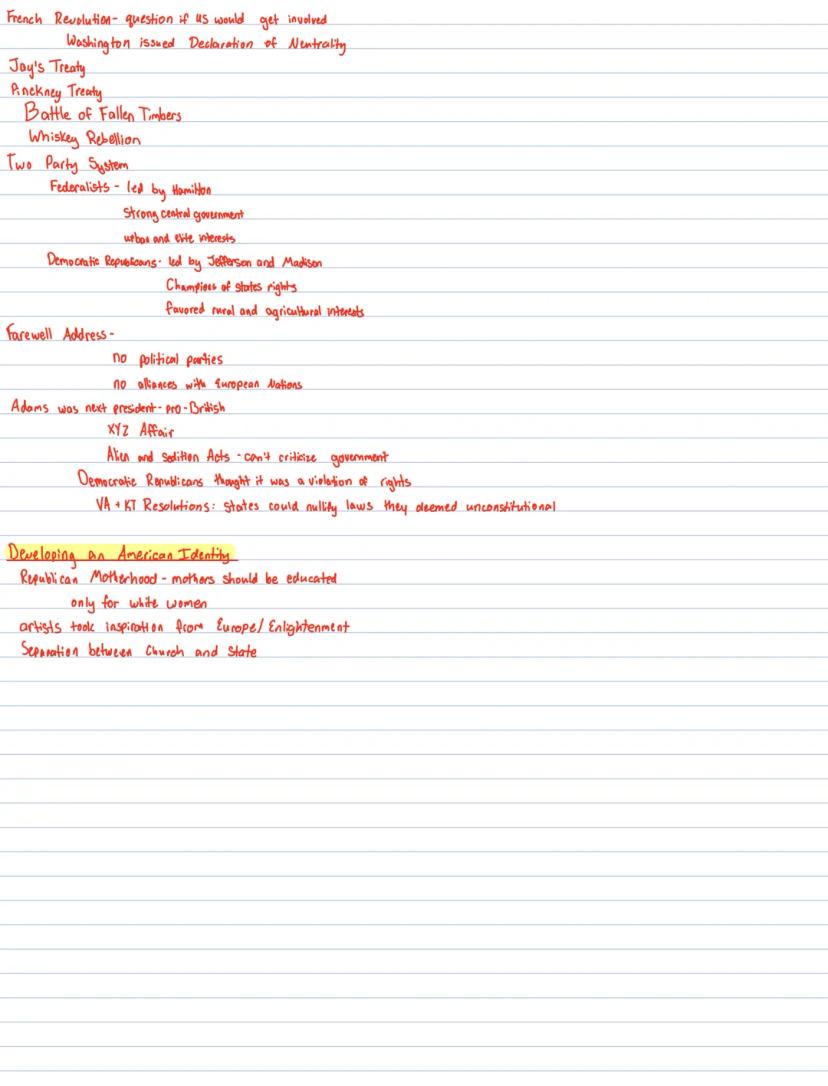 French Revolution- question if US would get involved
Washington issued Declaration of Neutrality
Jay's Treaty
Pinckney Treaty
Battle of Fallen Timbers
Whiskey Rebellion
Two Party System
Federalists - led by Hamilton
Strong central government
urban and elite interests
Democratic Republicans- led by Jefferson and Madison
Champions of states rights
favored rural and agricultural interests
Farewell Address -
no political parties
no alliances with European Nations
Adams was next president- pro-British
XYZ Affair
Alien and Sedition Acts - can't criticize government
Democratic Republicans thought it was a violation of rights
VA + KT Resolutions: states could nullify laws they deemed unconstitutional
Developing an American Identity
Republican Motherhood - mothers should be educated
only for white women
artists took inspiration from Europe/Enlightenment
Separation between Church and State